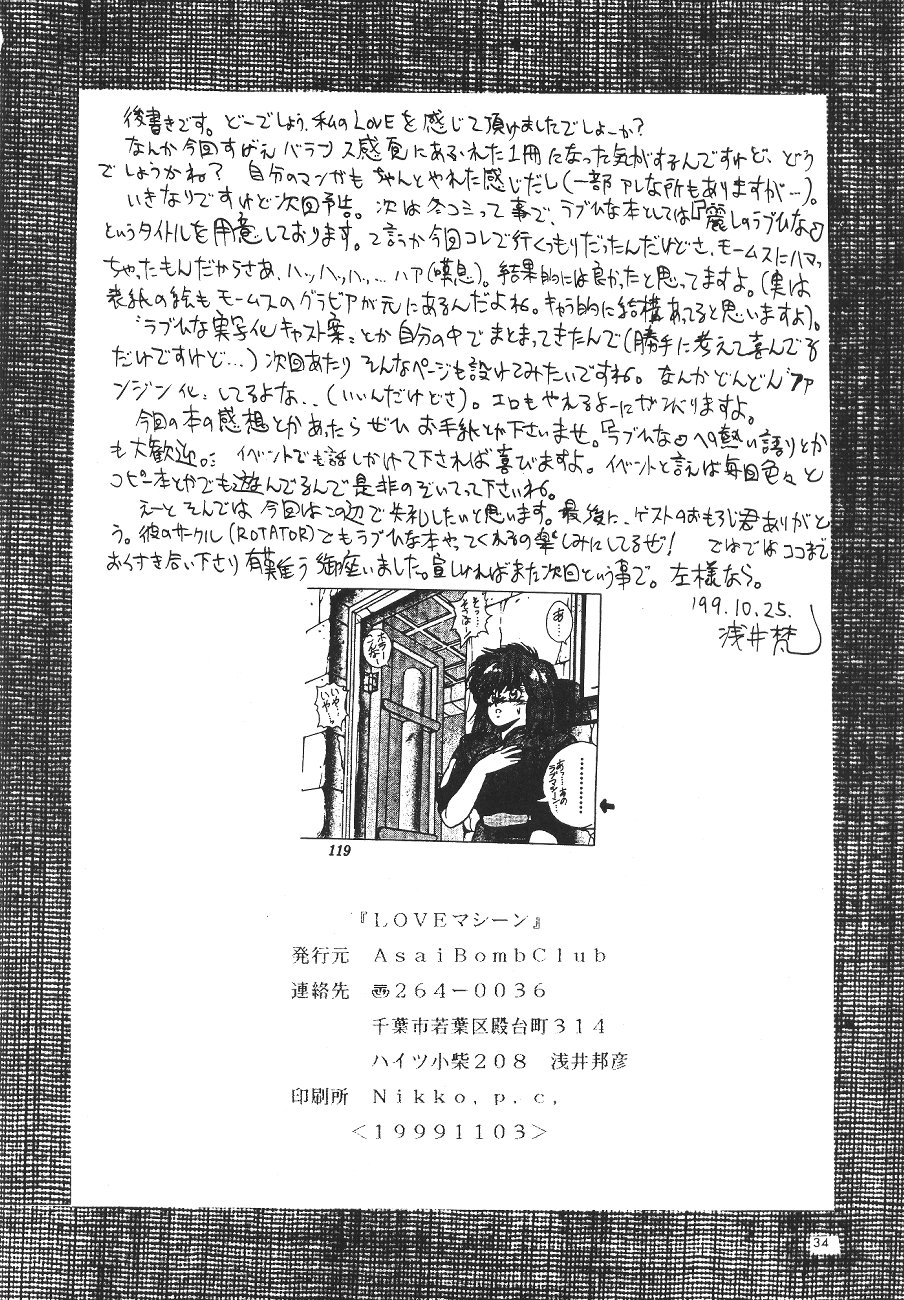 後書きです。どーでしょう、私のLOVEを感じて頂けましたでしょーか?
なんか今回すげえバランス感覚にあふれた1冊になった気がするんですけど、どう
でしょうかね? 自分のマンガもちゃんとやれた感じだし(一部アレな所もありますが…)。
いきなりですけど次回予告。次は冬コミって事で、ラブひな本としては『麗しのラブひな』
というタイトルを用意しております。て言うか今回コレで行くつもりだったんだけどさ、モームスにハマっ
ちゃったもんだからさあ、ハッハッハッ…ハア(嘆息)。結果的には良かったと思ってますよ。(実は
表紙の絵もモームスのグラビアが元にあるんだよね。キャラ的に結構あってると思いますよ)。
"ラブひな実写化キャスト案"とか自分の中でまとまってきたんで(勝手に考えて喜んでる
だけですけど…)次回あたりそんなページも設けてみたいですね。なんかどんどん"ファ
ンジン化"してるよな..(いいんだけどさ)。エロもやれるよーにガンバりますよ。
今回の本の感想とかあったらぜひお手紙とか下さいませ。『ラブひな』への熱い語りとか
も大歓迎。イベントでも話しかけて下されば喜びますよ。イベントと言えば毎回色々と
コピー本とかでも遊んでるんで是非のぞいてって下さいね。
えーとそんでは今回はこの辺で失礼したいと思います。最後に、ゲストのおもろじ君ありがと
う。彼のサークル(ROTATOR)でもラブひな本やってくれるの楽しみにしてるぜ! ではではココまで
おつきあい下さり有難う御座いました。宜しければまた次回という事で。左様なら。
'99.10.25.
浅井梵
あ…
そっ…そうねーっ
ホラーンなー!
いや…いや…
…………
あっ…あのラブマシーン…
119
『LOVEマシーン』
発行元 AsaiBombClub
連絡先 〠264-0036
千葉市若葉区殿台町314
ハイツ小柴208 浅井邦彦
印刷所 Nikko, p, c,
<19991103>
34